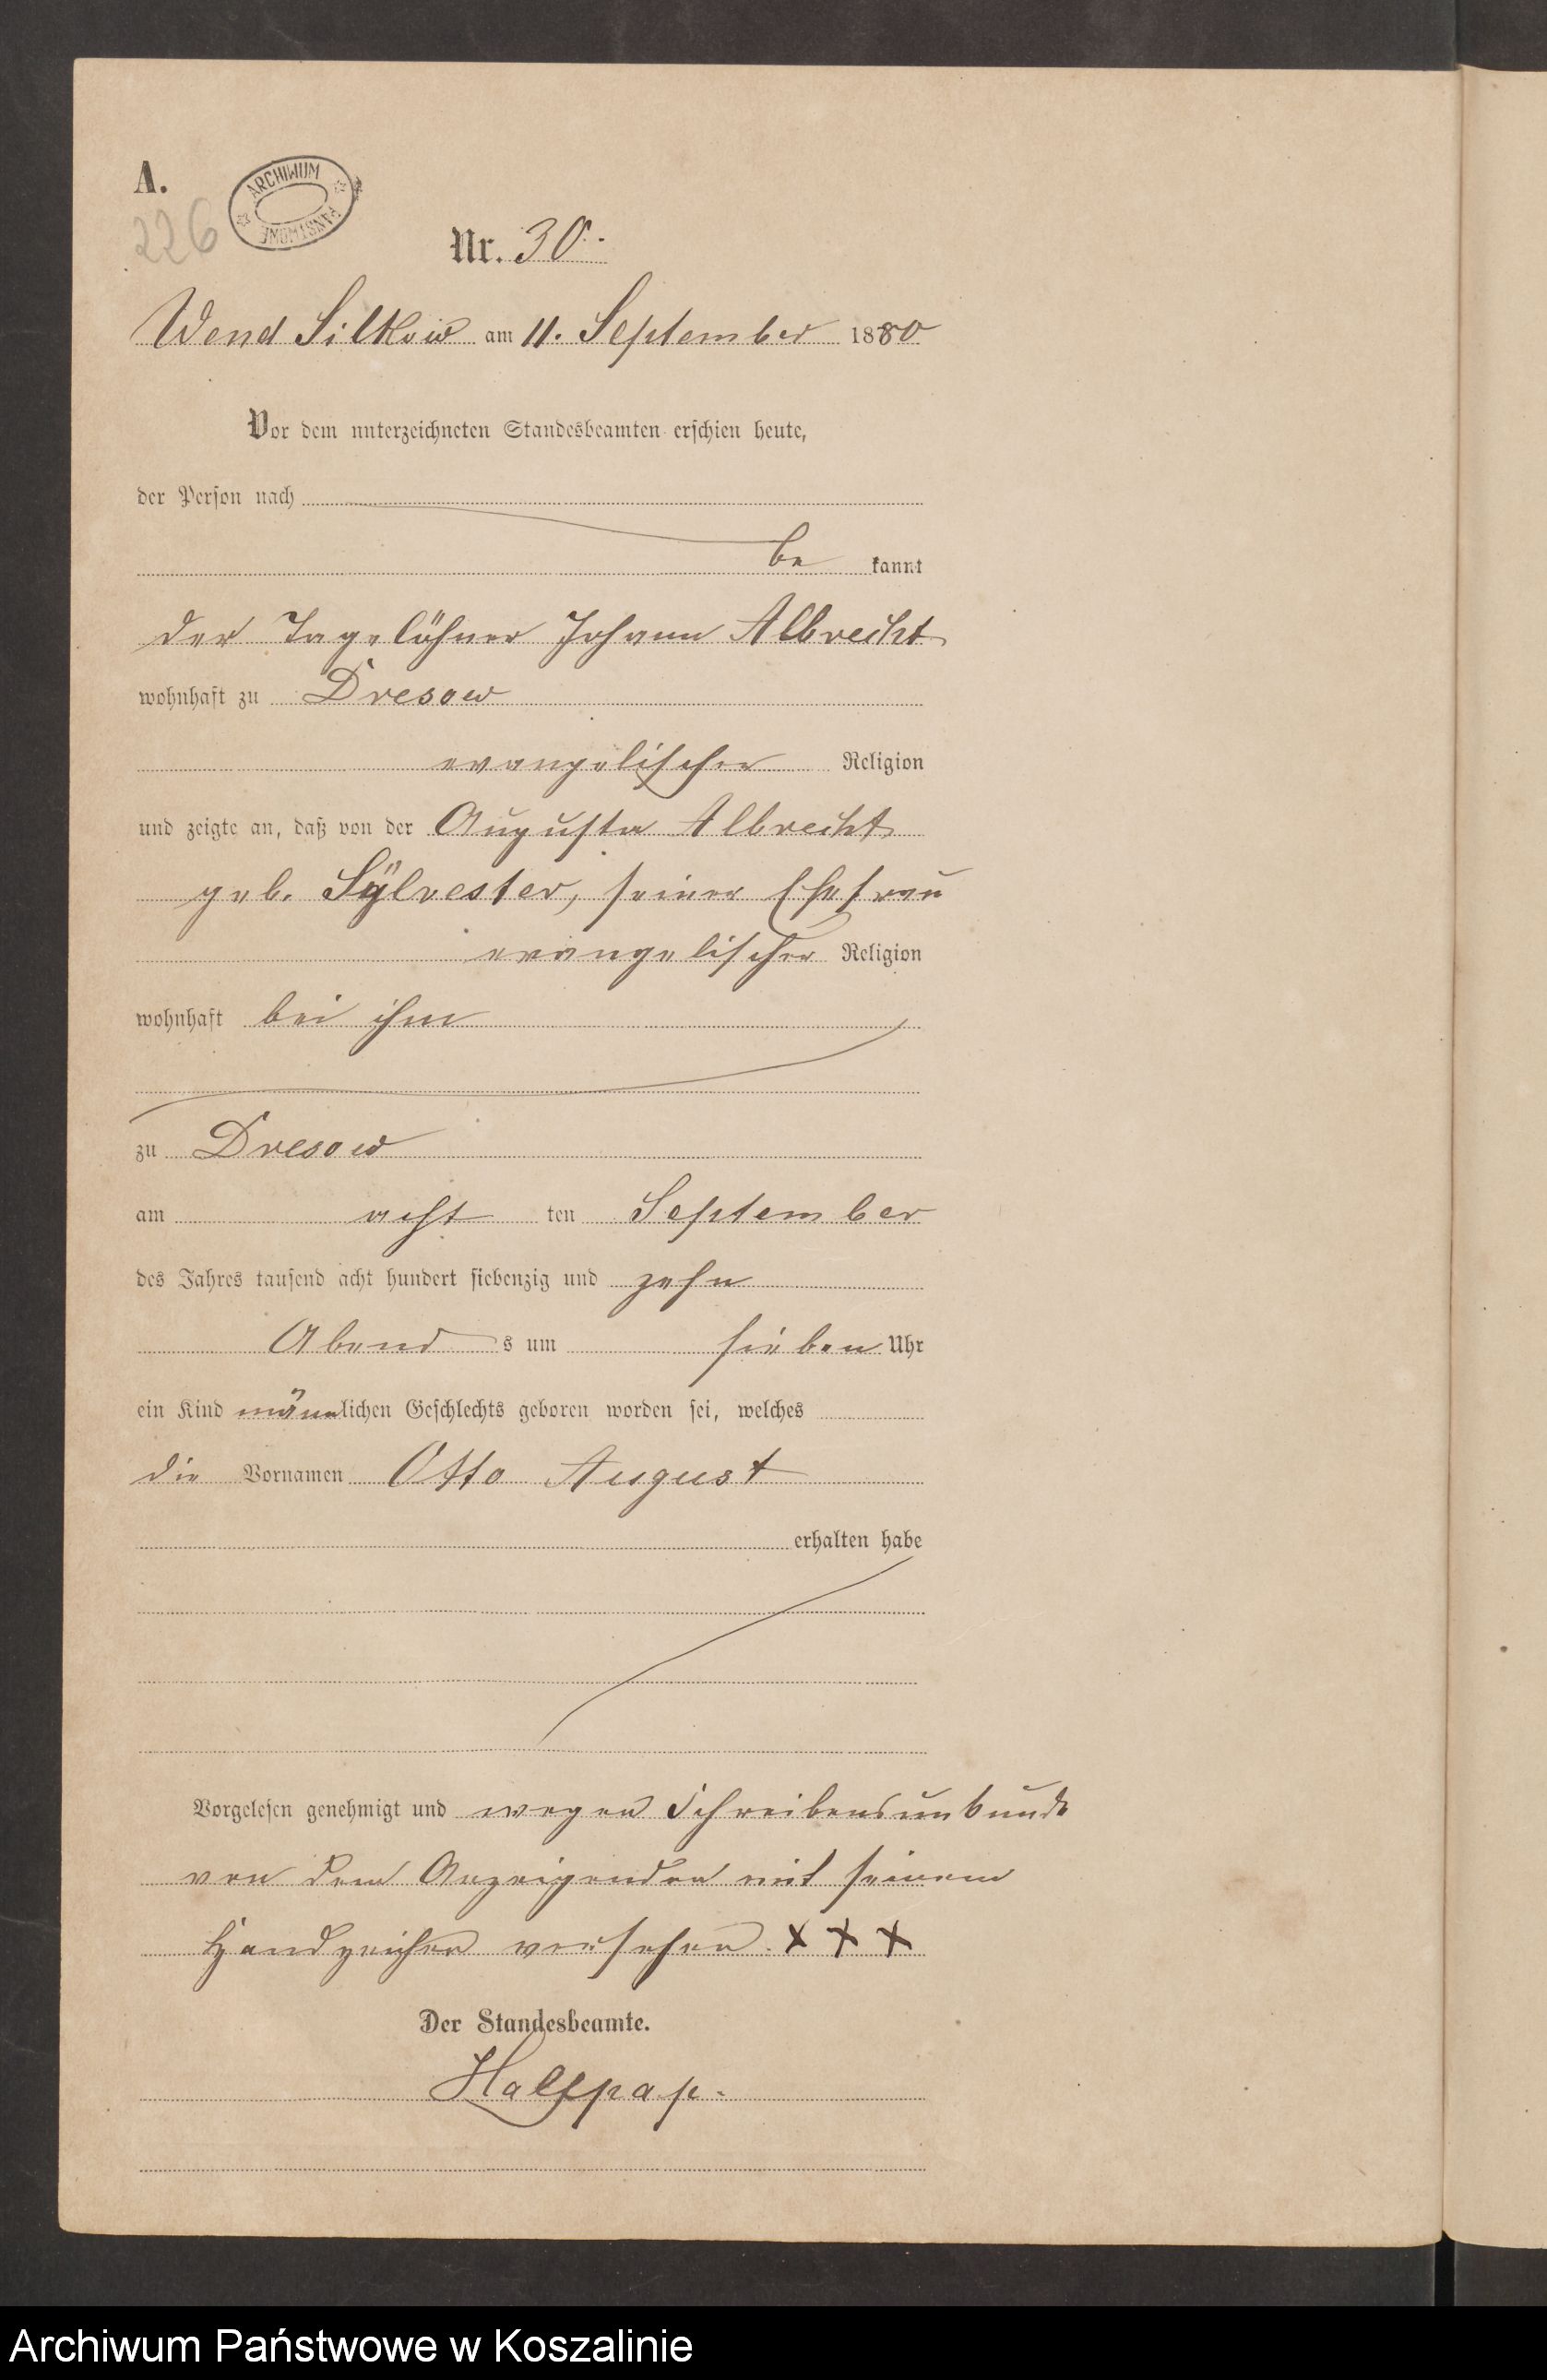 A.
ARCHIWUM PAŃSTWOWE
226
Nr. 30.
Wend Silkow am 11. September 1880
Vor dem unterzeichneten Standesbeamten erschien heute,
der Person nach
be kannt
der Tagelöhner Johann Albrecht
wohnhaft zu Dresow
evangelischer Religion
und zeigte an, daß von der Auguste Albrecht
geb. Sÿlvester, seiner Ehefrau
evangelischer Religion
wohnhaft bei ihm
zu Dresow
am acht ten September
des Jahres tausend acht hundert siebenzig und zehn
Abend s um sieben Uhr
ein Kind männlichen Geschlechts geboren worden sei, welches
die Vornamen Otto August
erhalten habe
Vorgelesen genehmigt und wegen Schreibensunkunde
von dem Anzeigenden mit seinem
Handzeichen versehen. XXX
Der Standesbeamte.
Halfpap.
Archiwum Państwowe w Koszalinie